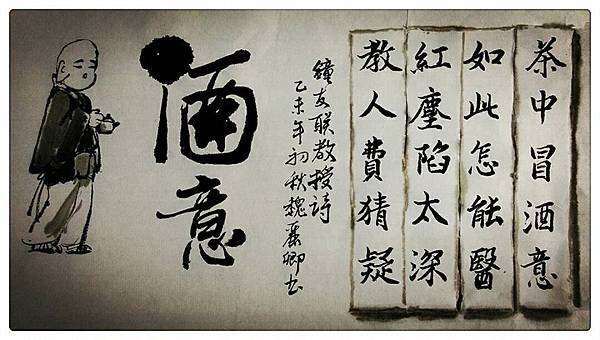 茶中冒酒意
如此怎能醫
紅塵陷太深
教人費猜疑
鐘友联教授詩
乙未年初秋魏麗卿书
酒意